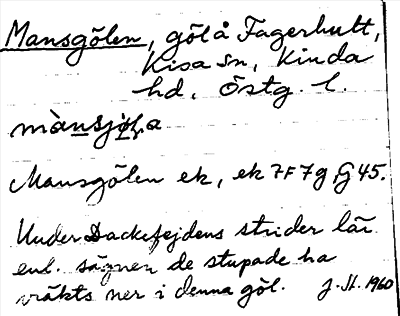 Mansgölen, göl å Fagerhult,
Kisa sn, Kinda
hd, Östg. l.
mànsjö̀ɫa
Mansgölen ek, ek 7F7g G45.
Under Dackefejdens strider lär
enl. sägnen de stupade ha
vräkts ner i denna göl. J. H. 1960